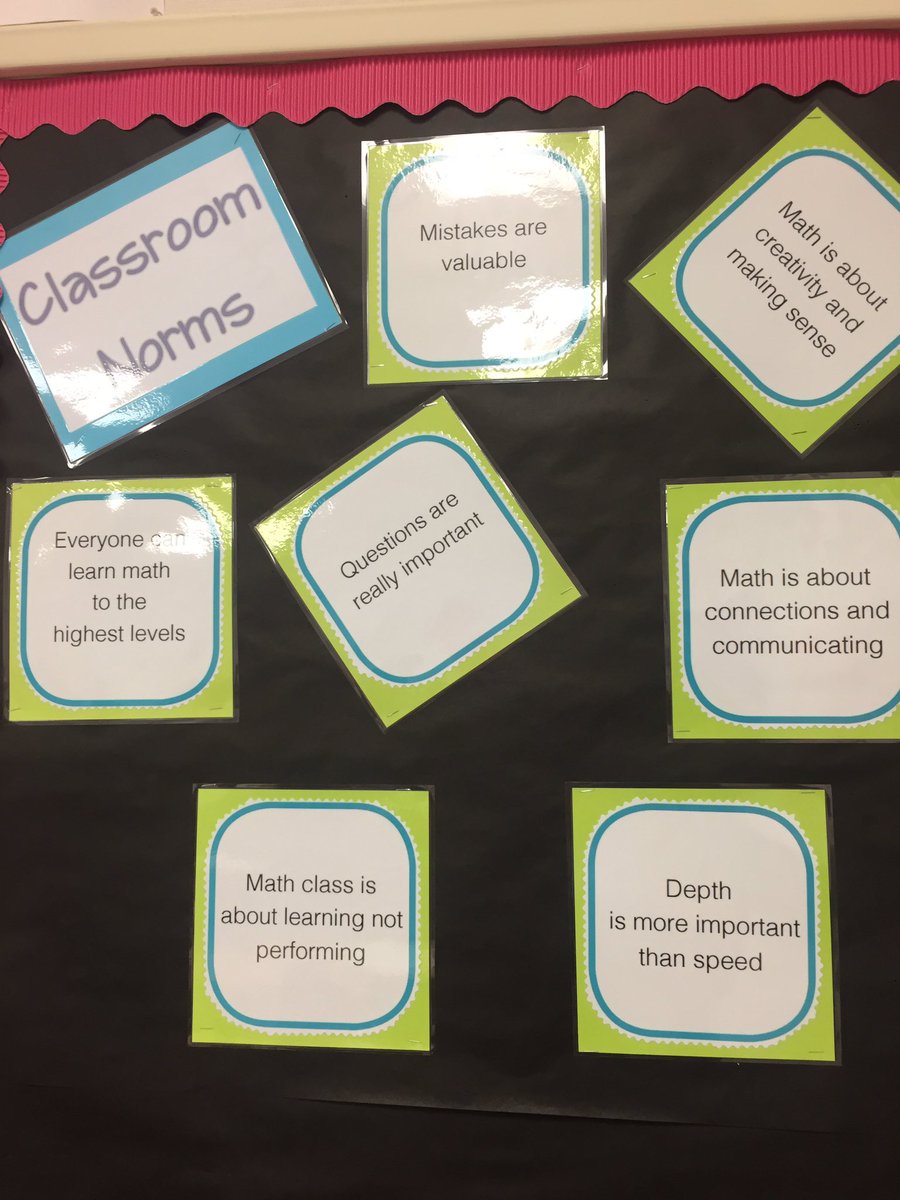 Classroom
Norms
Mistakes are
valuable
Math is about
creativity and
making sense
Everyone can
learn math
to the
highest levels
Questions are
really important
Math is about
connections and
communicating
Math class is
about learning not
performing
Depth
is more important
than speed